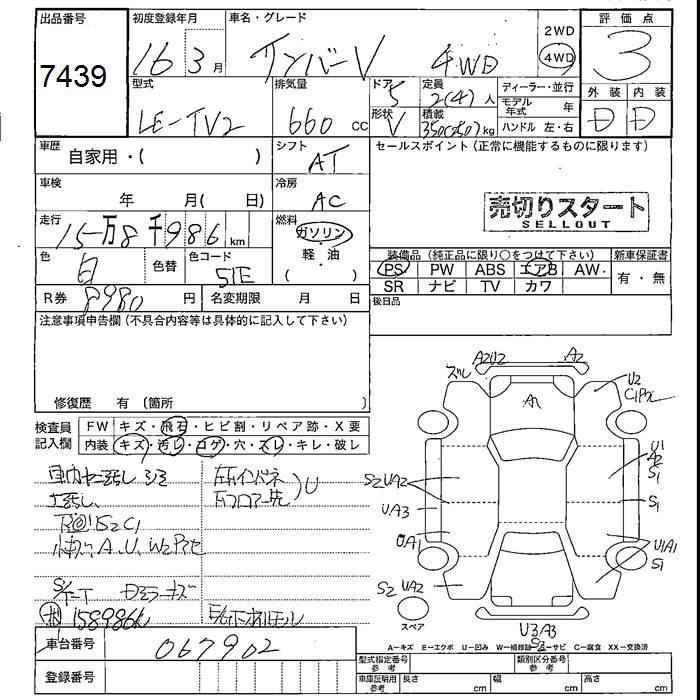 出品番号
7439
初度登録年月
16 3月
車名・グレード
サンバーV 4WD
2WD
4WD
評価点
3
外装 内装
D D
型式
LE-TV2
排気量
660cc
ドア
5
形状
V
定員
2(4)人
積載
350(250)kg
ディーラー・並行
モデル年式 年
ハンドル 左・右
車歴
自家用・( )
シフト
AT
セールスポイント (正常に機能するものに限ります)
車検
年 月( 日)
冷房
AC
売切りスタート
SELLOUT
走行
15万8千986km
燃料
ガソリン
軽・油
( )
色
白
色替
色コード
51E
装備品 (純正品に限り○をつけて下さい)
PS PW ABS エアB AW
SR ナビ TV カワ
新車保証書
有・無
R券 8980円
名変期限 月 日
後日品
注意事項申告欄 (不具合内容等は具体的に記入して下さい)
修復歴 有 〔箇所 〕
検査員記入欄
FW キズ・飛石・ヒビ割・リペア跡・X要
内装 キズ・汚レ・コゲ・穴・スレ・キレ・破レ
A2U2
A2
ズレ
A
U2
U1
A2
S1
S1
S2UA2
UA3
UA1
U1A1
S1
S2 UA2
U3A3
S2
スペア
158986k
A−キズ E−エクボ U−凹み W−補修跡 S−サビ C−腐食 XX−交換済
車台番号
067902
登録番号
型式指定番号 参考
類別区分番号 参考
車庫証明用 参考
長さ cm
幅 cm
高さ cm